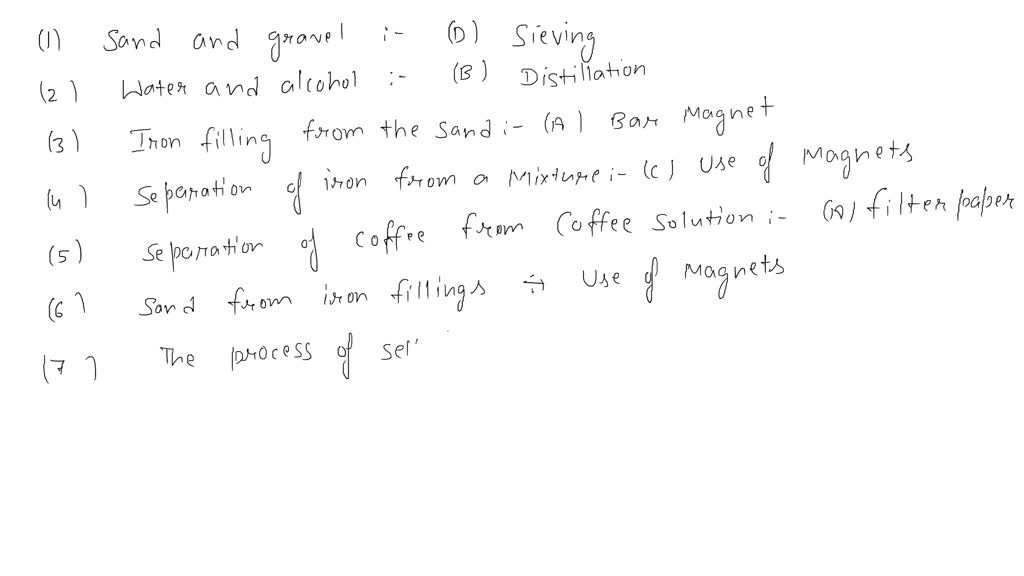 (1) Sand and gravel :- (D) Sieving
(2) Water and alcohol :- (B) Distillation
(3) Iron filling from the sand :- (A) Bar Magnet
(4) Separation of iron from a Mixture :- (C) Use of Magnets
(5) Separation of coffee from Coffee solution :- (A) filter paper
(6) Sand from iron fillings :- Use of Magnets
(7) The process of